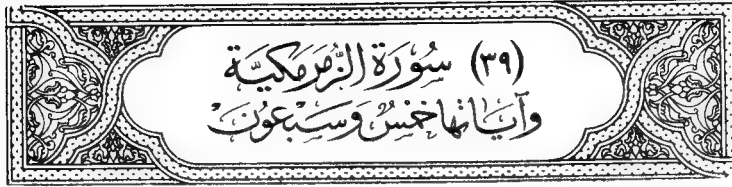 (٣٩) سُورَة الزُّمَر مَكيَّة
وَآيَاتهَا خَمْسٌ وَسَبْعُونَ